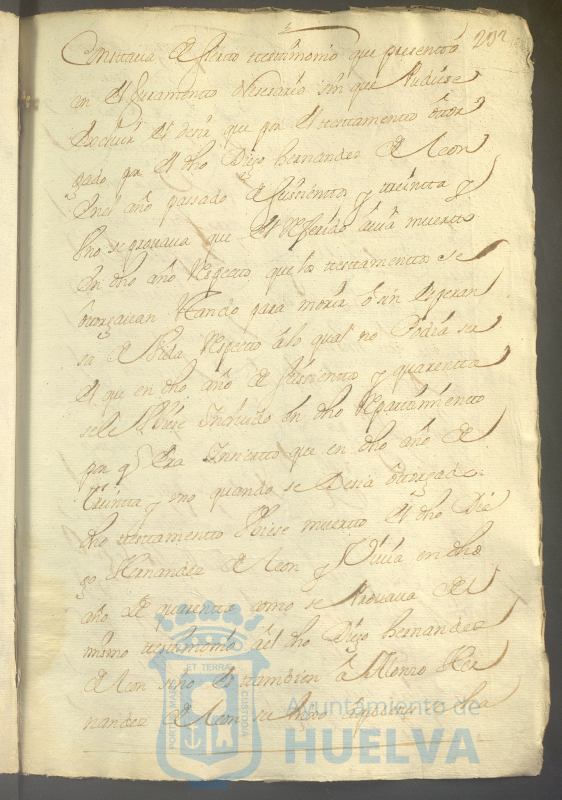 202
Constaua de cierto testimonio que presento
en el juramento nesesario sin que pudiese
el desir que por el testamento otor
gado por el dho Diego hernandez de Leon
en el año passado de quinientos y treinta y
vno se prouaua que el referido auia muerto
en dho año respecto que los testamentos se
otorgauan quando para morir o sin esperan
sa de vida respecto a lo qual no Podia ser
el que en dho año de quinientos y quarentta
se le vbiese Incluido en dho Repartimiento
por q era Insierto que en dho año de
treinta y vno quando se Desia otorgado
dho testamento vbiese muerto el dho Die
go Hernandez de Leon y Viuia en dho
año de quarenta como se Prouaua del
mismo testamonio a el dho Diego hernandez
de Leon sino es tambien a Alonso Her
nandez de Leon su hijo
PORTUS MARIS ET TERRAE CUSTODIA
Ayuntamiento de
HUELVA